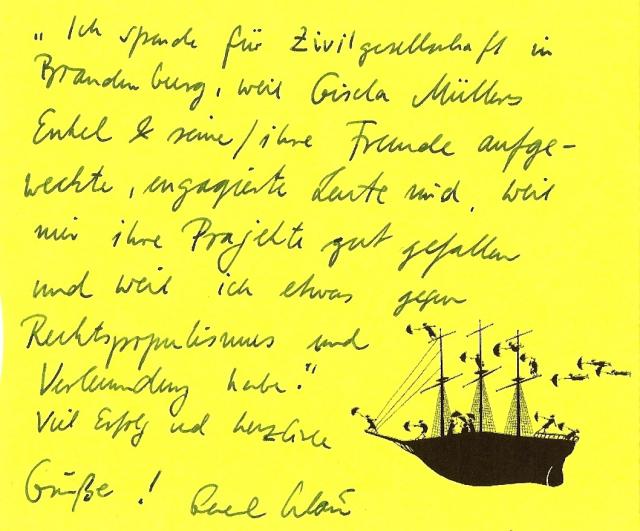 „Ich spende für Zivilgesellschaft in
Brandenburg, weil Gisela Müllers
Enkel & seine/ihre Freunde aufge-
weckte, engagierte Leute sind, weil
mir ihre Projekte gut gefallen
und weil ich etwas gegen
Rechtspopulismus und
Verleumdung habe."
Viel Erfolg und herzliche
Grüße!